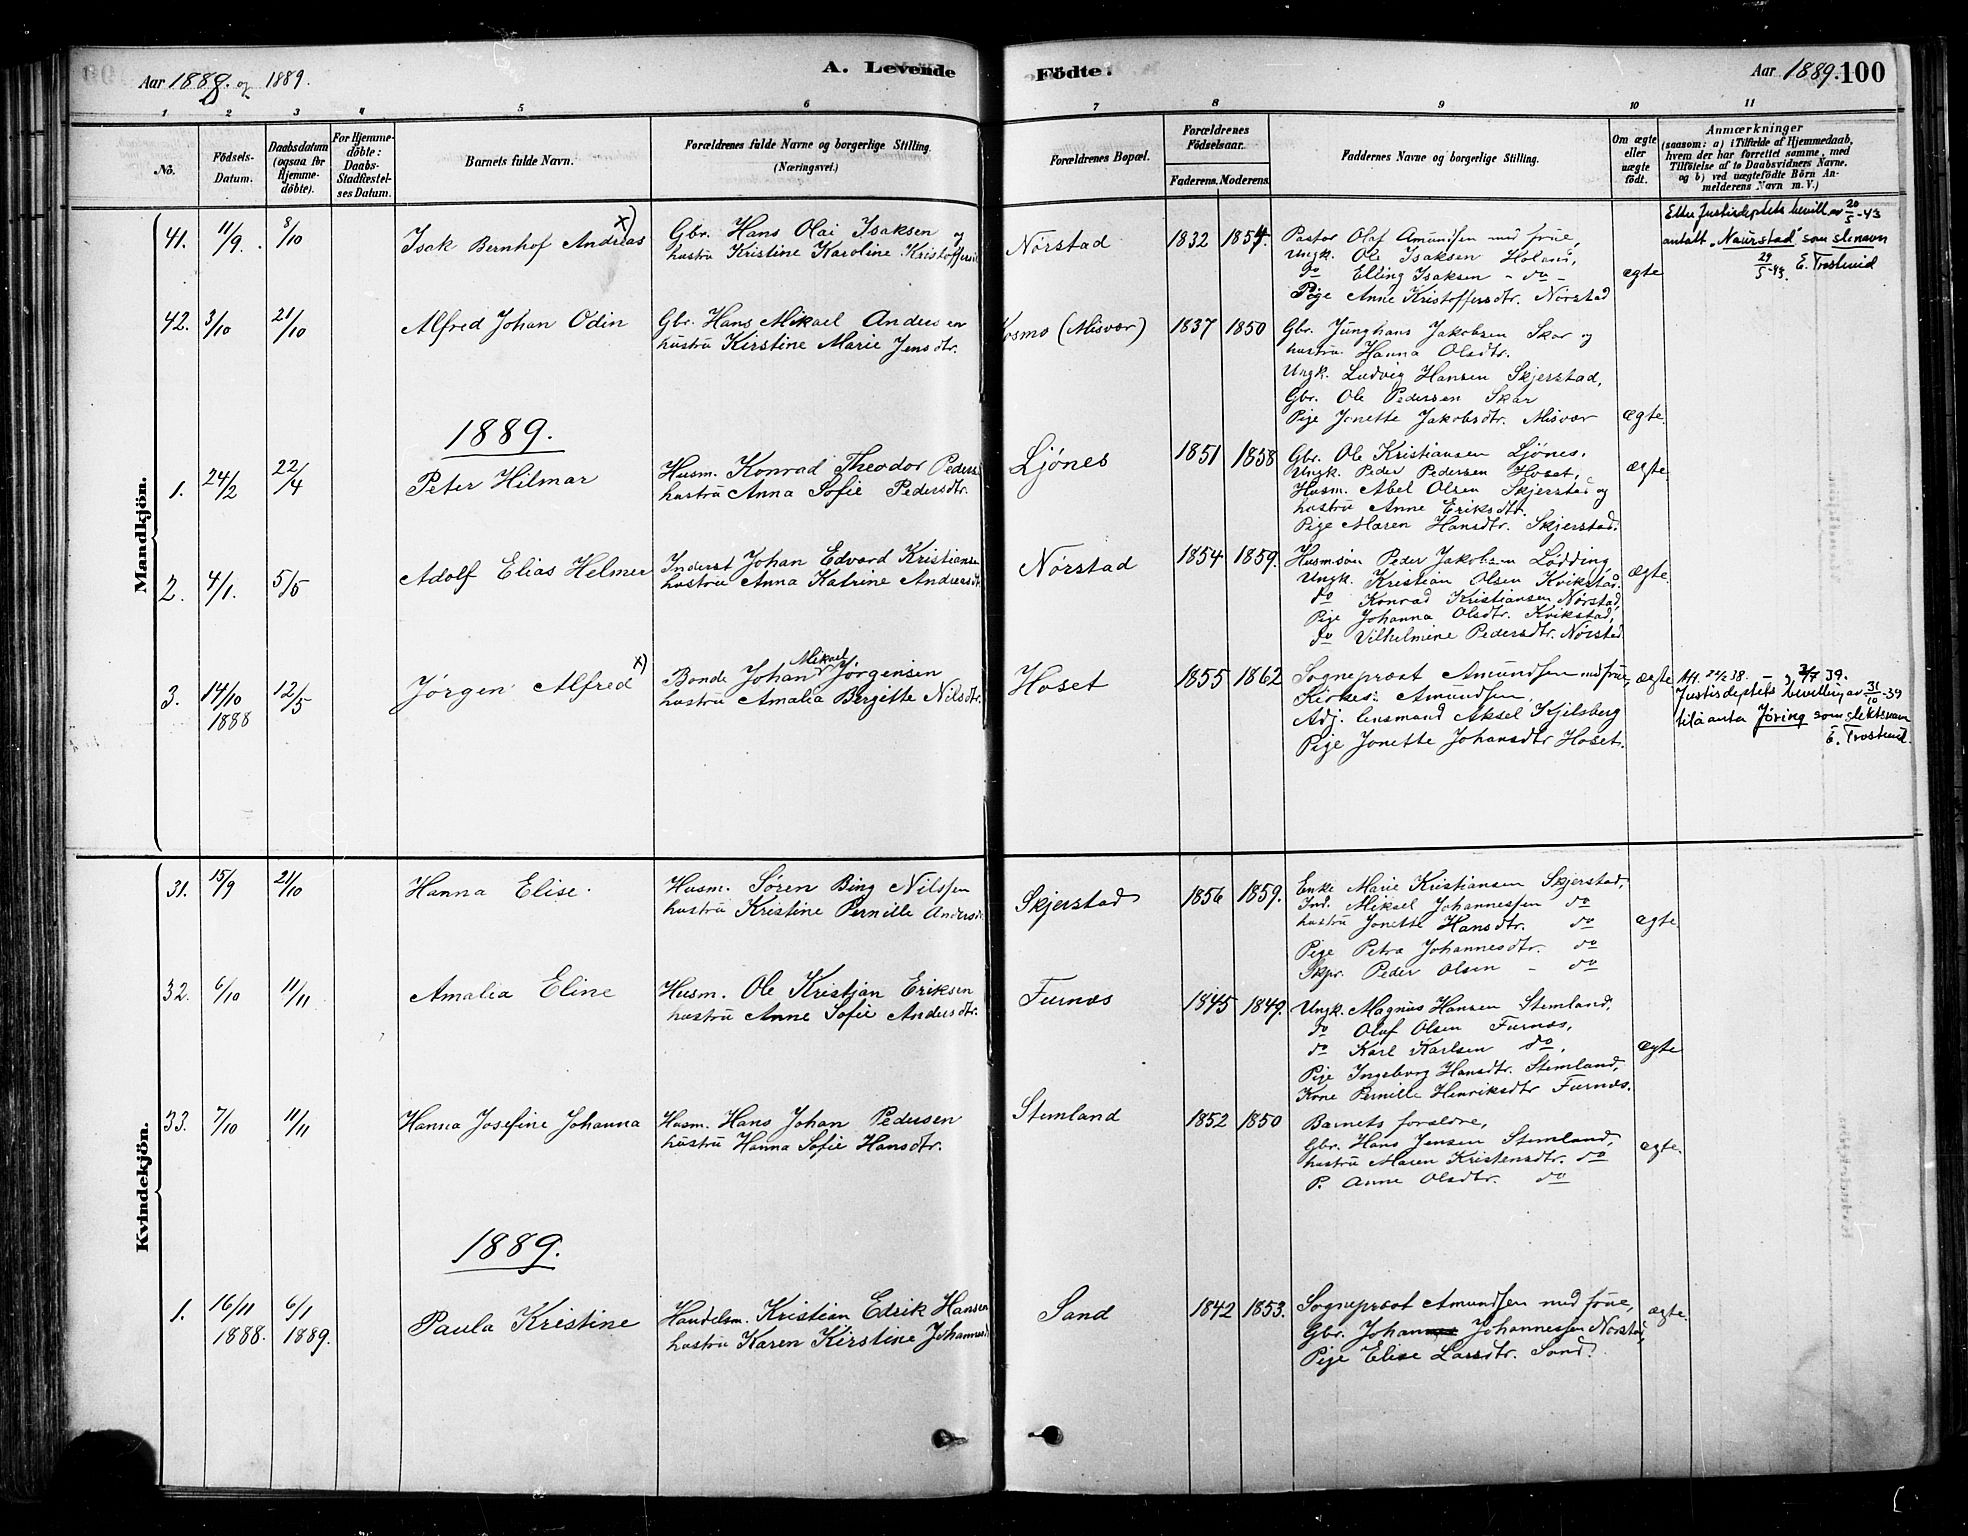 Aar 1888. og 1889.
A. Levende
Födte.
Aar 1889. 100
1 2 3 4 5 6 7 8 9 10 11
No.
Födsels-Datum.
Daabsdatum (ogsaa for Hjemme-döbte).
For Hjemme-döbte: Daabs-Stadfæstel-ses Datum.
Barnets fulde Navn.
Forældrenes fulde Navne og borgerlige Stilling. (Næringsvei.)
Forældrenes Bopæl.
Forældrenes Födselsaar.
Faderens. Moderens.
Faddernes Navne og borgerlige Stilling.
Om ægte eller uægte födt.
Anmærkninger
(saasom: a) i Tilfælde af Hjemmedaab, hvem der har forrettet samme, med Tilföielse af to Daabsvidners Navne. og b) ved uægtefödte Börn An-melderens Navn m. V.)
Mandkjön.
41. 11/9. 8/10 Isak Bernhof Andreas x)
Gbr. Hans Olai Isaksen og
hustru Kristine Karoline Kristoffersd
Nørstad 1832 1854.
Pastor Olaf Amundsen med frue,
Ungk. Ole Isaksen Holand,
do Elling Isaksen - do -
Pige Anne Kristoffersdtr. Nørstad
ægte
Etter Justisdeptets bevill. av 20/5-43
antatt "Naurstad" som slenavn
29/5-43. E. Trosterud
42. 3/10 21/10 Alfred Johan Odin
Gbr. Hans Mikael Andersen
hustru Kirstine Marie Jensdtr.
Kosmo (Misvær) 1837 1850
Gbr. Junghans Jakobsen Skar og
hustru Hanna Olsdtr.
Ungk. Ludvig Hansen Skjerstad,
Gbr. Ole Pedersen Skar
Pige Jonette Jakobsdtr. Misvær
ægte.
1889.
1. 24/2 22/4 Peter Hilmar
Husm. Konrad Theodor Peders
hustru Anna Sofie Pedersdtr.
Ljönes 1851 1858
Gbr. Ole Kristiansen Ljönes,
Ungk. Peder Pedersen Hoset,
Husm. Abel Olsen Skjerstad og
hustru Anne Eriksdtr.
Pige Maren Hansdtr. Skjerstad.
ægte
2. 4/1. 5/5 Adolf Elias Helmer
Inderst Johan Edvard Kristianse
hustru Anna Katrine Andreasdt
Nørstad 1854 1859.
Husmsøn Peder Jakobsen Lödding,
Ungk. Kristian Olsen Kvikstad.
do Konrad Kristiansen Nørstad,
Pige Johanna Olsdtr. Kvikstad,
do Vilhelmine Pedersdtr. Nørstad
ægte.
3. 14/10 1888 12/5 Jørgen Alfred x)
Bonde Johan Mikael Jörgensen
hustru Amalia Bergitte Nilsdtr.
Hoset 1855 1862
Sogneprest Amundsen med frue,
Kirkes: Amundsen,
Adj. lensmand Aksel Kjelsberg
Pige Jonette Johansdtr Hoset.
ægte
Justisdeptets bevilling av 31/10-39
til å anta Jöring som slektsnavn
E. Trosterud.
Kvindekjön.
31. 15/9 21/10 Hanna Elise.
Husm. Søren Bing Nilssen
hustru Kristine Pernille Andersd
Skjerstad 1856 1859.
Enke Marie Kristiansen Skjerstad,
Ind. Mikael Johannessen do
hustru Jonette Hansdtr. do
Pige Petra Johannesdtr. do
Skpr. Peder Olsen - do
ægte.
32. 6/10 11/11 Amalia Eline
Husm. Ole Kristian Eriksen
hustru Anne Sofie Andersdtr.
Furnæs 1845 1849.
Ungk. Magnus Hansen Stemland,
do Oluf Olsen Furnæs,
do Karl Karlsen do,
Pige Ingeborg Hansdtr. Stemland,
Kone Pernille Henriksdtr Furnæs.
ægte
33. 7/10 11/11 Hanna Josefine Johanna
Husm. Hans Johan Pedersen
hustru Hanna Sofie Hansdtr.
Stemland 1852 1850
Barnets forældre,
Gbr. Hans Jensen Stemland,
hustru Maren Kristensdtr. do
P. Anne Olsdtr. do
ægte.
1889.
1. 16/11 1888. 6/1 1889. Paula Kristine
Handelsm. Kristian Edrik Hansen
hustru Karen Kirstine Johannesd
Sand 1842 1853.
Sogneprest Amundsen med frue,
Gbr. Johan Johannessen Nørstad,
Pige Elise Larsdtr. Sand.
ægte.